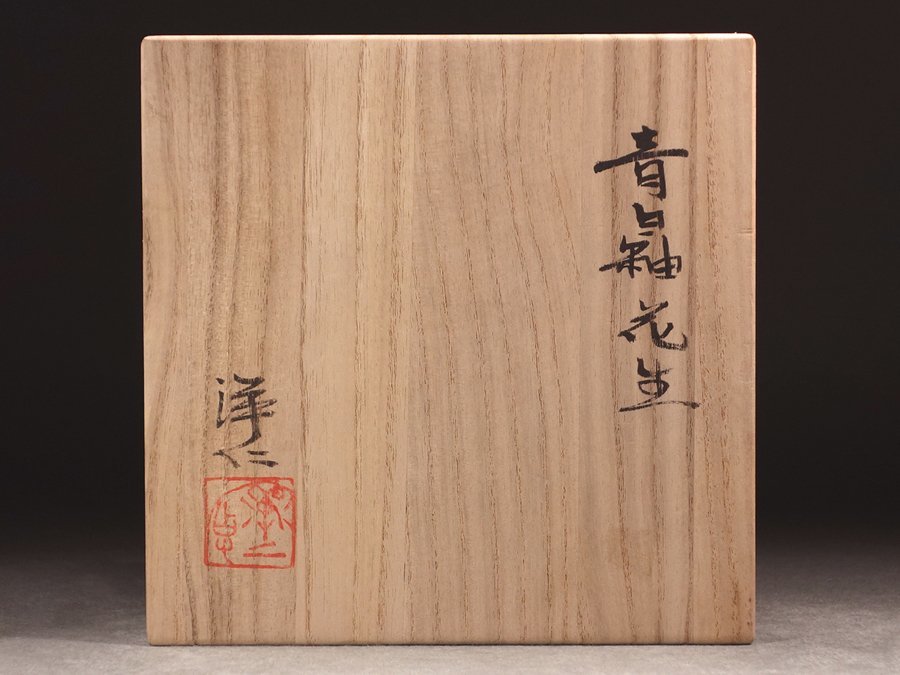 青白釉花生
洋仁